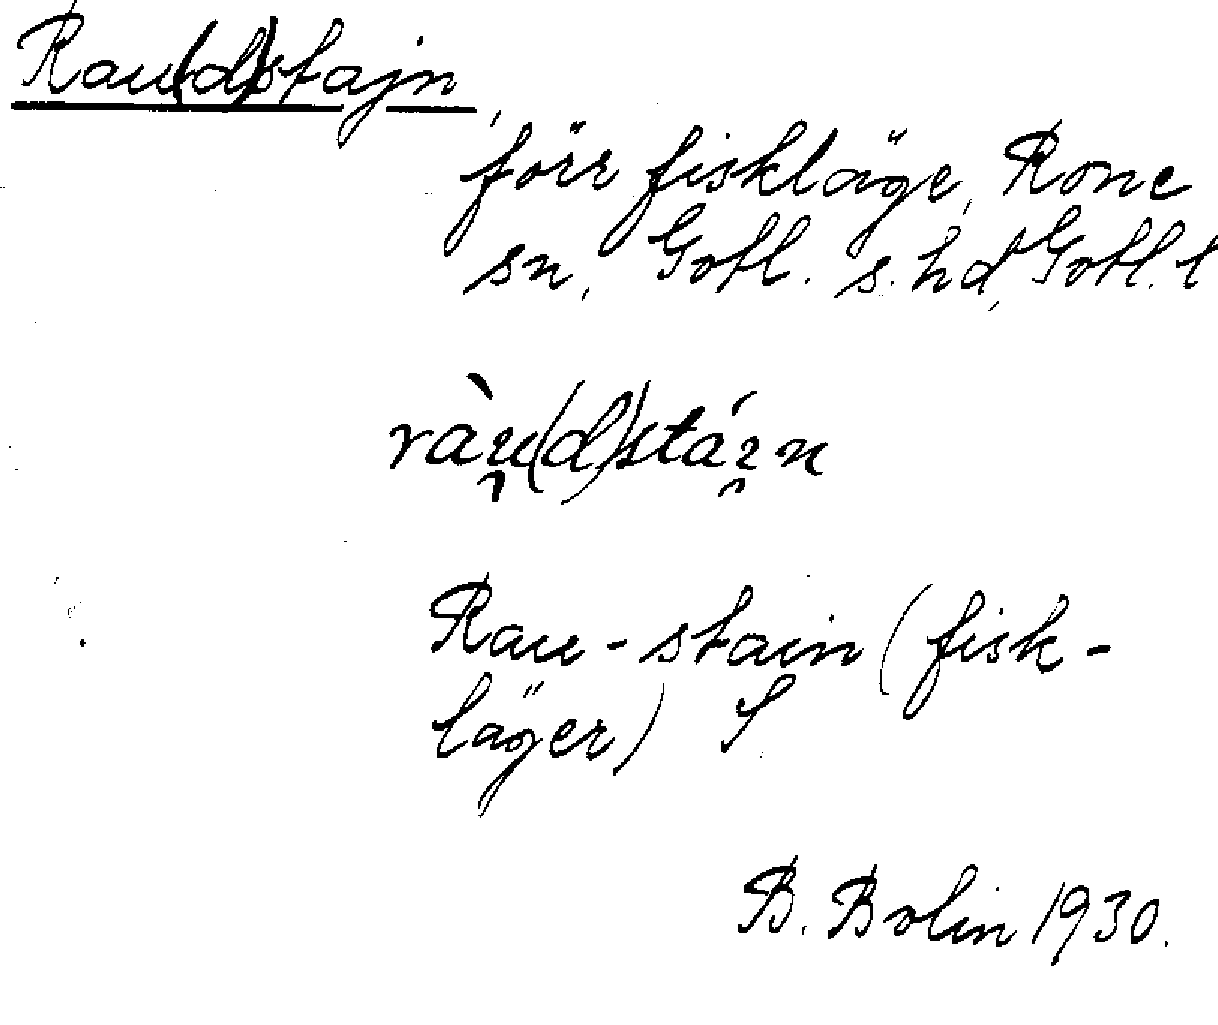 Rau(d)stajn,
förr fiskläge, Rone
sn, Gotl. s. hd, Gotl. l
ràu̯(d)stáɪ̯n
Rau-stain (fisk-
läger) S
B. Bolin 1930.